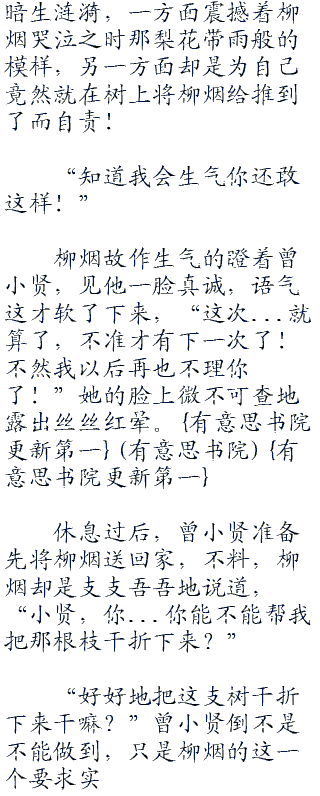 暗生涟漪，一方面震撼着柳
烟哭泣之时那梨花带雨般的
模样，另一方面却是为自己
竟然就在树上将柳烟给推到
了而自责！
“知道我会生气你还敢
这样！”
柳烟故作生气的瞪着曾
小贤，见他一脸真诚，语气
这才软了下来，“这次...就
算了，不准才有下一次了！
不然我以后再也不理你
了！”她的脸上微不可查地
露出丝丝红晕。{有意思书院
更新第一}(有意思书院){有
意思书院更新第一}
休息过后，曾小贤准备
先将柳烟送回家，不料，柳
烟却是支支吾吾地说道，
“小贤，你...你能不能帮我
把那根枝干折下来？”
“好好地把这支树干折
下来干嘛？”曾小贤倒不是
不能做到，只是柳烟的这一
个要求实